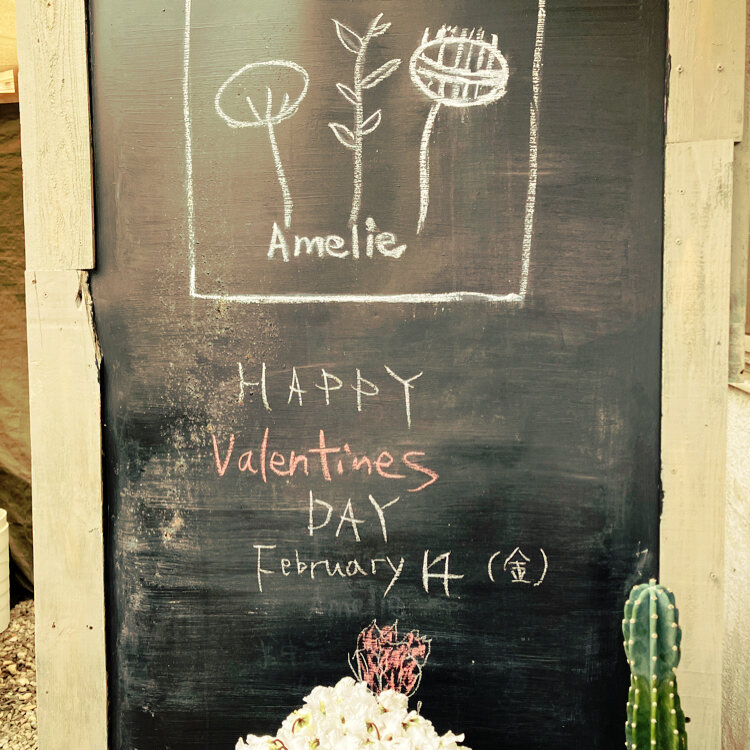 Amelie
HAPPY
Valentines
DAY
February 14 (金)
Amelie